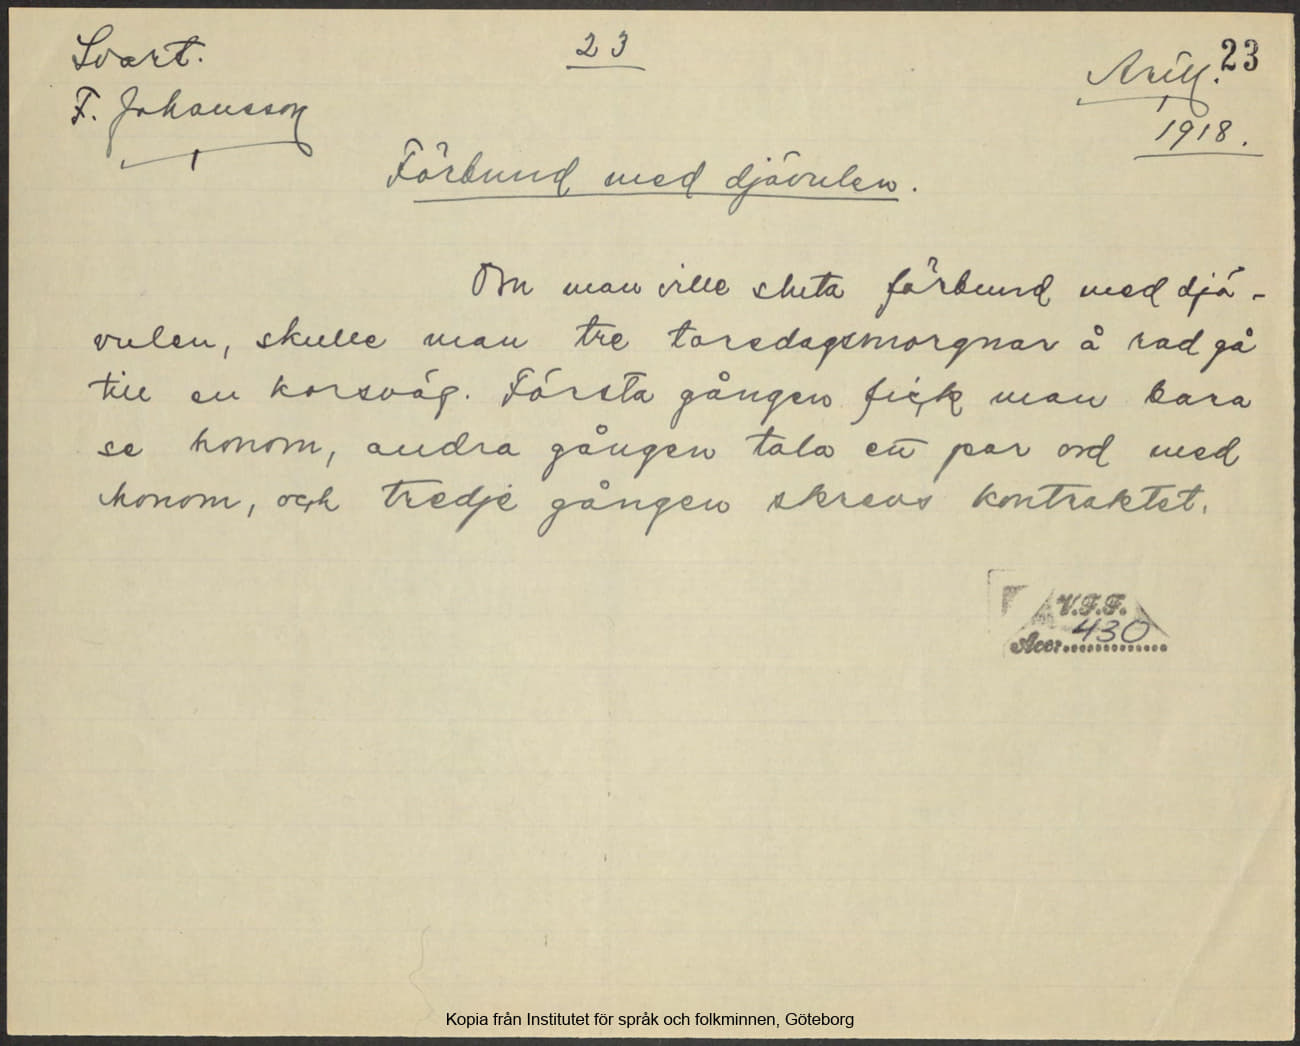 Svart.
23
23
Arill.
F. Johansson
1918.
Förbund med djävulen.
Om man ville sluta förbund med djä-
vulen, skulle man tre torsdagsmorgnar å rad gå
till en korsväg. Första gången fick man bara
se honom, andra gången tala ett par ord med
honom, och tredje gången skrevs kontraktet.
V.F.F.
Acc: 430
Kopia från Institutet för språk och folkminnen, Göteborg